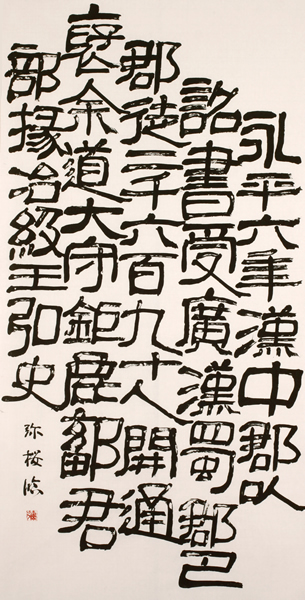 永平六年漢中郡以
詔書受廣漢蜀郡巴
郡徒二千六百九十人開通
褒余道大守鉅鹿鄐君
部掾冶級王弘史
弥桜臨